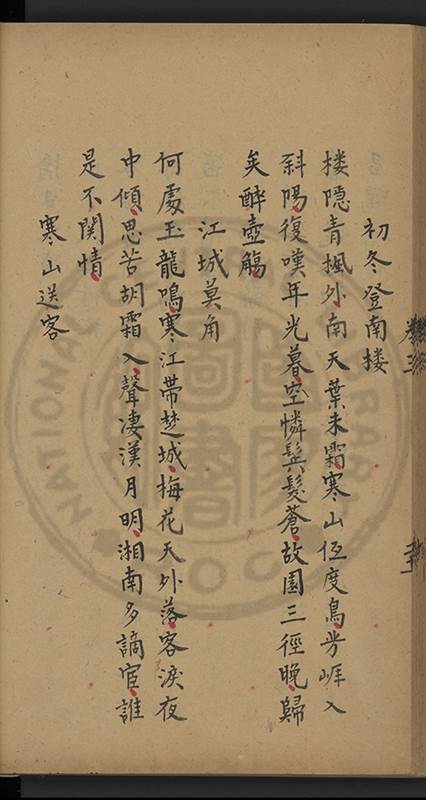 初冬登南楼
楼隐青楓外南天葉未霜寒山低度鳥岁崕入
斜陽復嘆年光暮空憐鬂髮蒼故園三徑晚歸
矣醉壺觴
江城莫角
何處玉龍鳴寒江帶楚城梅花天外落客淚夜
中傾思苦胡霜入聲凄漢月明湘南多謫宦誰
是不関情
寒山送客